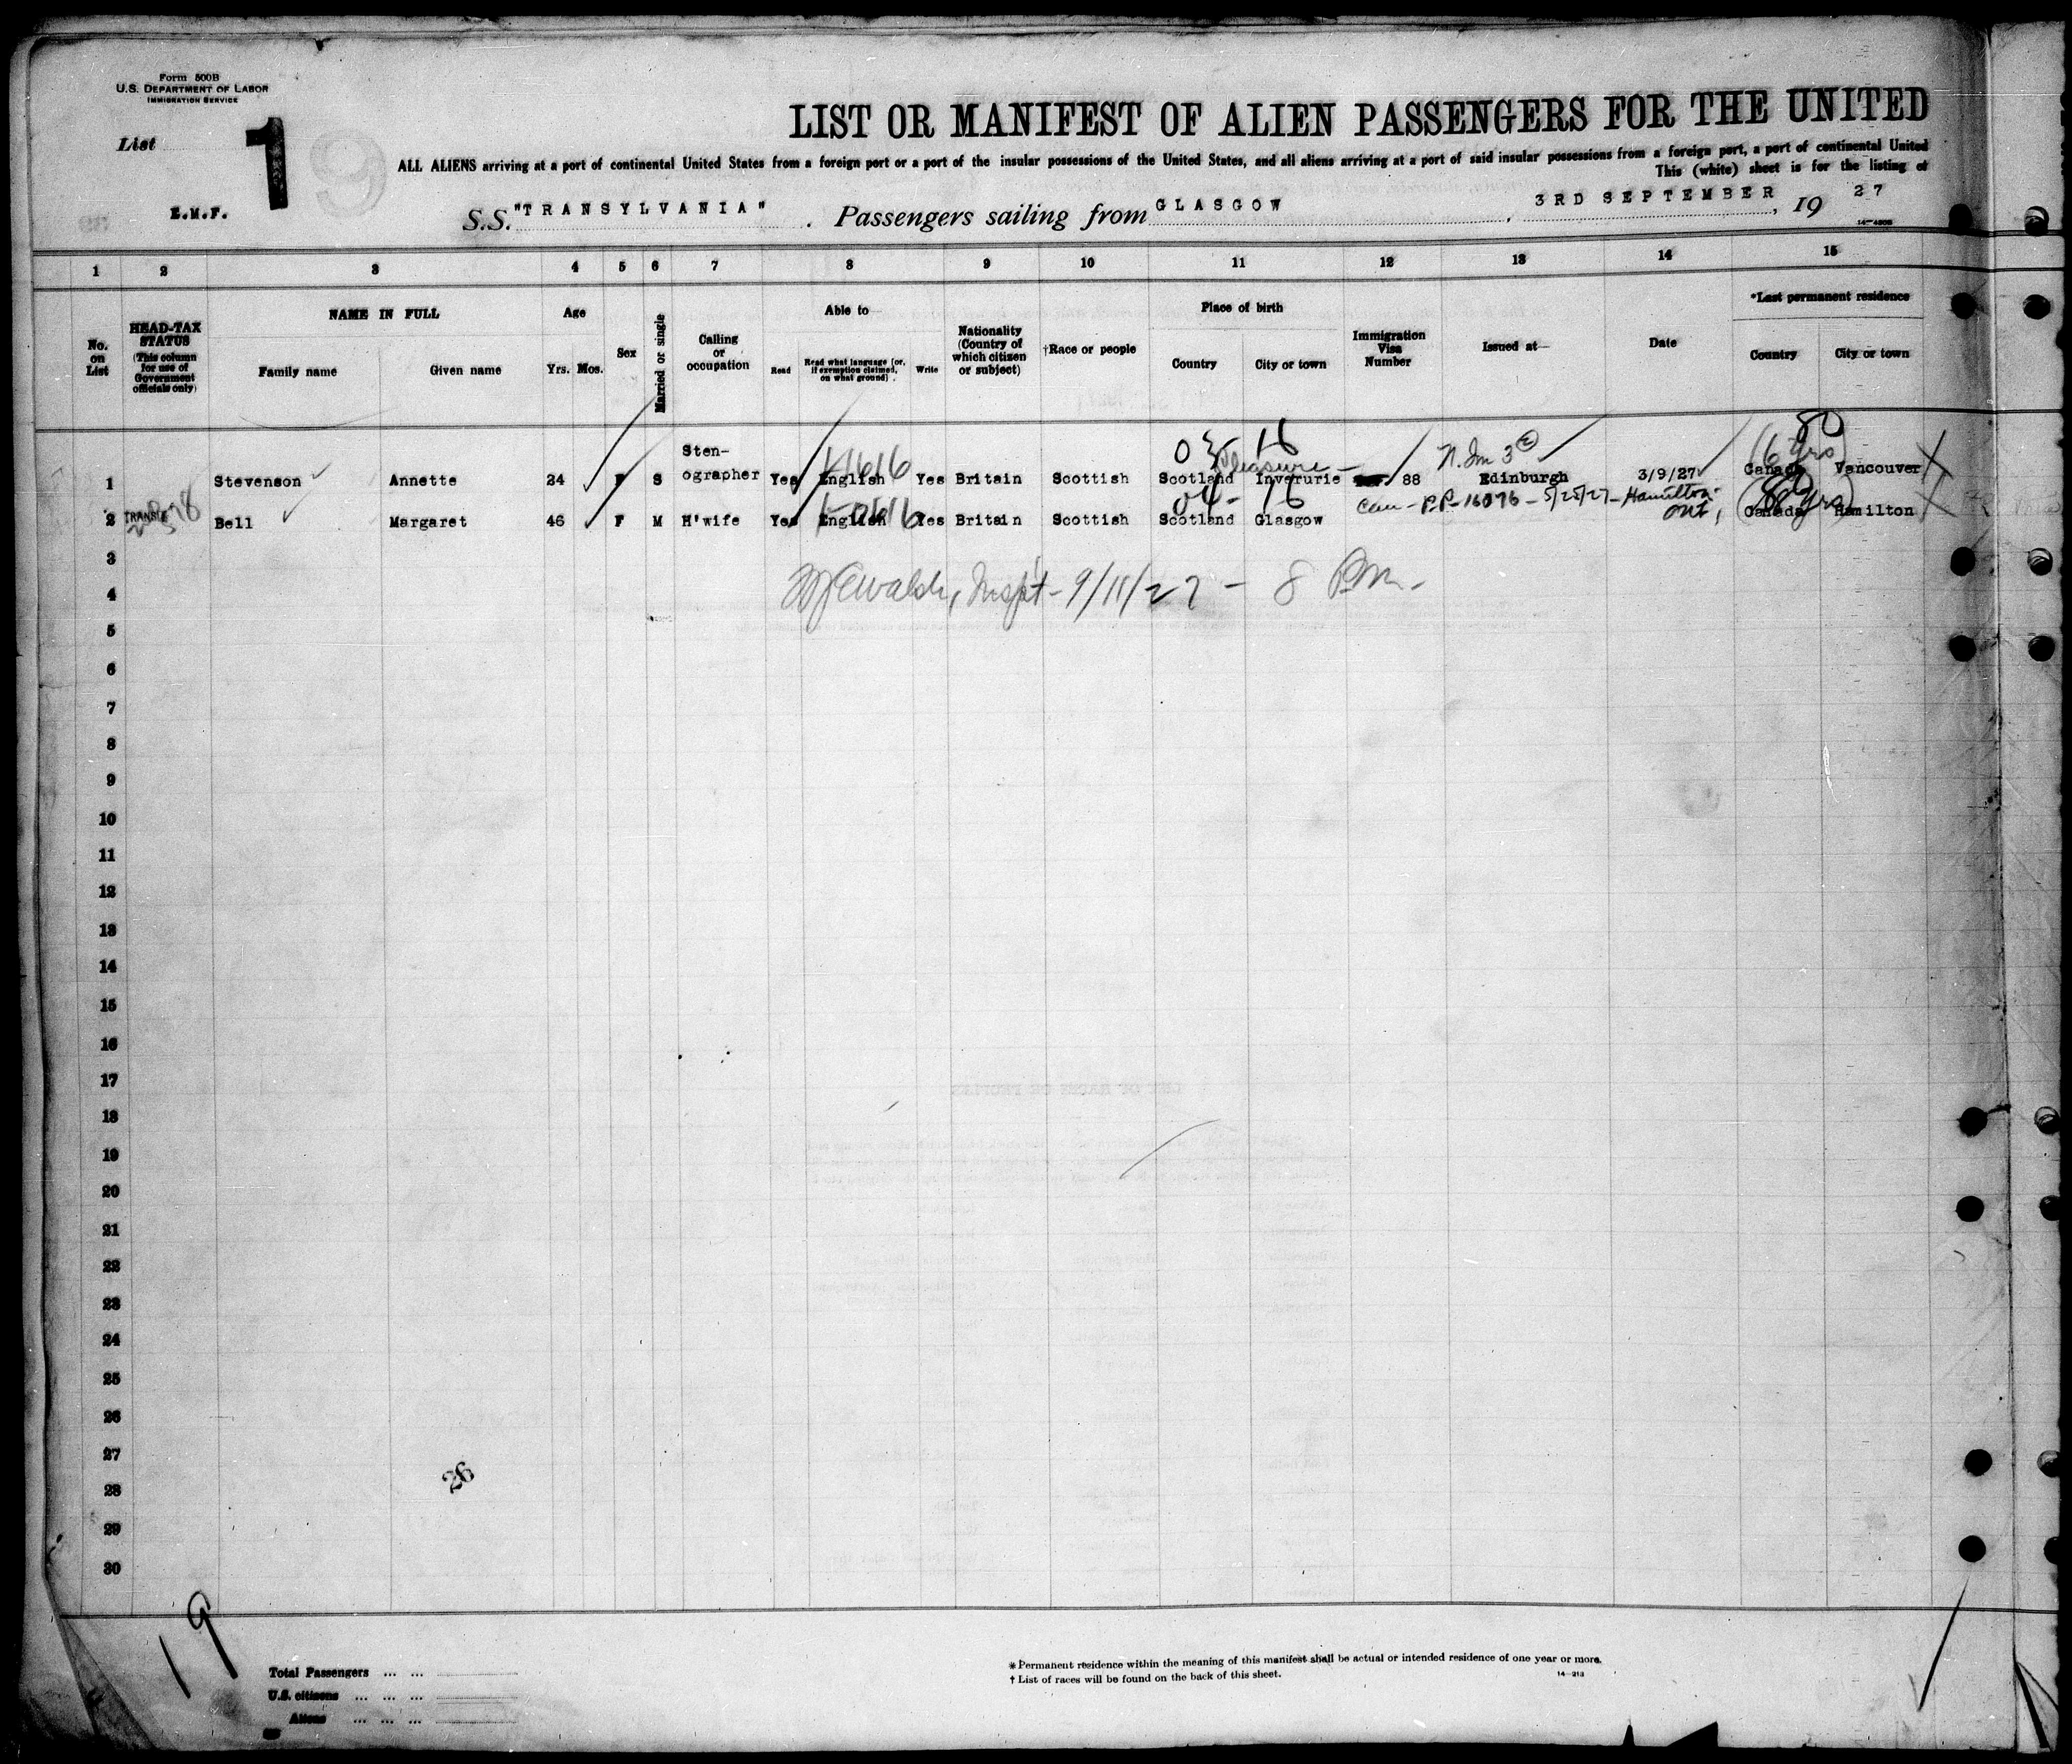 Form 500B
U.S. DEPARTMENT OF LABOR
IMMIGRATION SERVICE
List 1
E.M.F.
LIST OR MANIFEST OF ALIEN PASSENGERS FOR THE UNITED
ALL ALIENS arriving at a port of continental United States from a foreign port or a port of the insular possessions of the United States, and all aliens arriving at a port of said insular possessions from a foreign port, a port of continental United
This (white) sheet is for the listing of
S.S. "TRANSYLVANIA". Passengers sailing from GLASGOW, 3RD SEPTEMBER, 19 27
1 2 3 4 5 6 7 8 9 10 11 12 13 14 15
No. on List
HEAD-TAX STATUS (This column for use of Government officials only)
NAME IN FULL
Family name Given name
Age
Yrs. Mos.
Sex
Married or single
Calling or occupation
Able to
Read Read what language (or, if exemption claimed, on what ground) Write
Nationality (Country of which citizen or subject)
†Race or people
Place of birth
Country City or town
Immigration Visa Number
Issued at
Date
*Last permanent residence
Country City or town
03 16
Pleasure
N. Im 3
(6 yrs)
1 Stevenson Annette 24 F S Stenographer Yes English Yes Britain Scottish Scotland Inverurie 88 Edinburgh 3/9/27 Canada Vancouver
04 - 16
Can - P.P. - 16076 - 5/25/27 - Hamilton Ont,
2 Bell Margaret 46 F M H'wife Yes English Yes Britain Scottish Scotland Glasgow Canada Hamilton
3
Insp't - 9/11/27 - 8 Pm.
4
5
6
7
8
9
10
11
12
13
14
15
16
17
18
19
20
21
22
23
24
25
26
27
26
28
29
30
19
Total Passengers ... ...
U.S. citizens ... ... ...
Aliens ... ... ...
*Permanent residence within the meaning of this manifest shall be actual or intended residence of one year or more.
†List of races will be found on the back of this sheet.
14-213